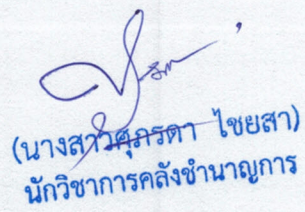 (นางสาวศุภรดา ไชยสา)
นักวิชาการคลังชำนาญการ